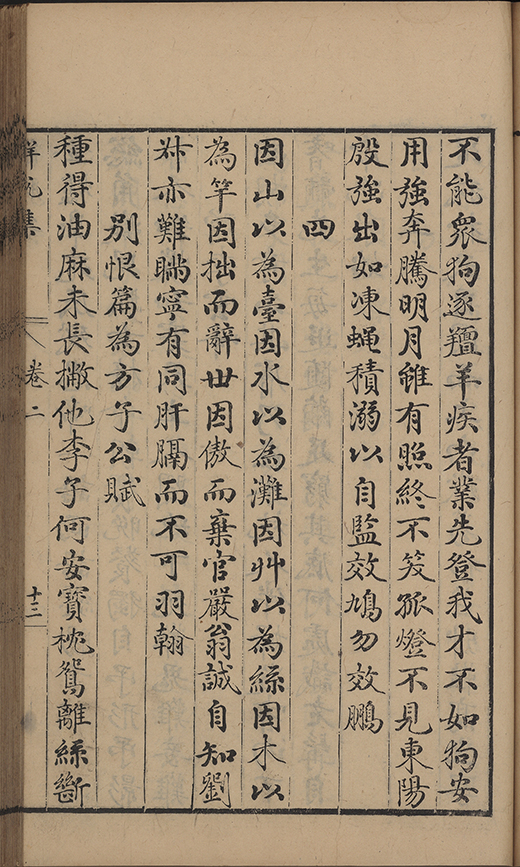 不能眾狗逐羶羊疾者業先登我才不如狗安
用強奔騰明月雖有照終不笑孤燈不見東陽
殷強出如凍蝇積溺以自監效鳩勿效鵬
四
因山以為臺因水以為灘因艸以為絲因木以
為竿因拙而辭世因傲而棄官嚴翁誠自知劉
叔亦難瞞寧有同肝膈而不可羽翰
別恨篇為方子公賦
種得油麻未長撇他李子何安寶枕鴛離絲斷
集
卷二
十三